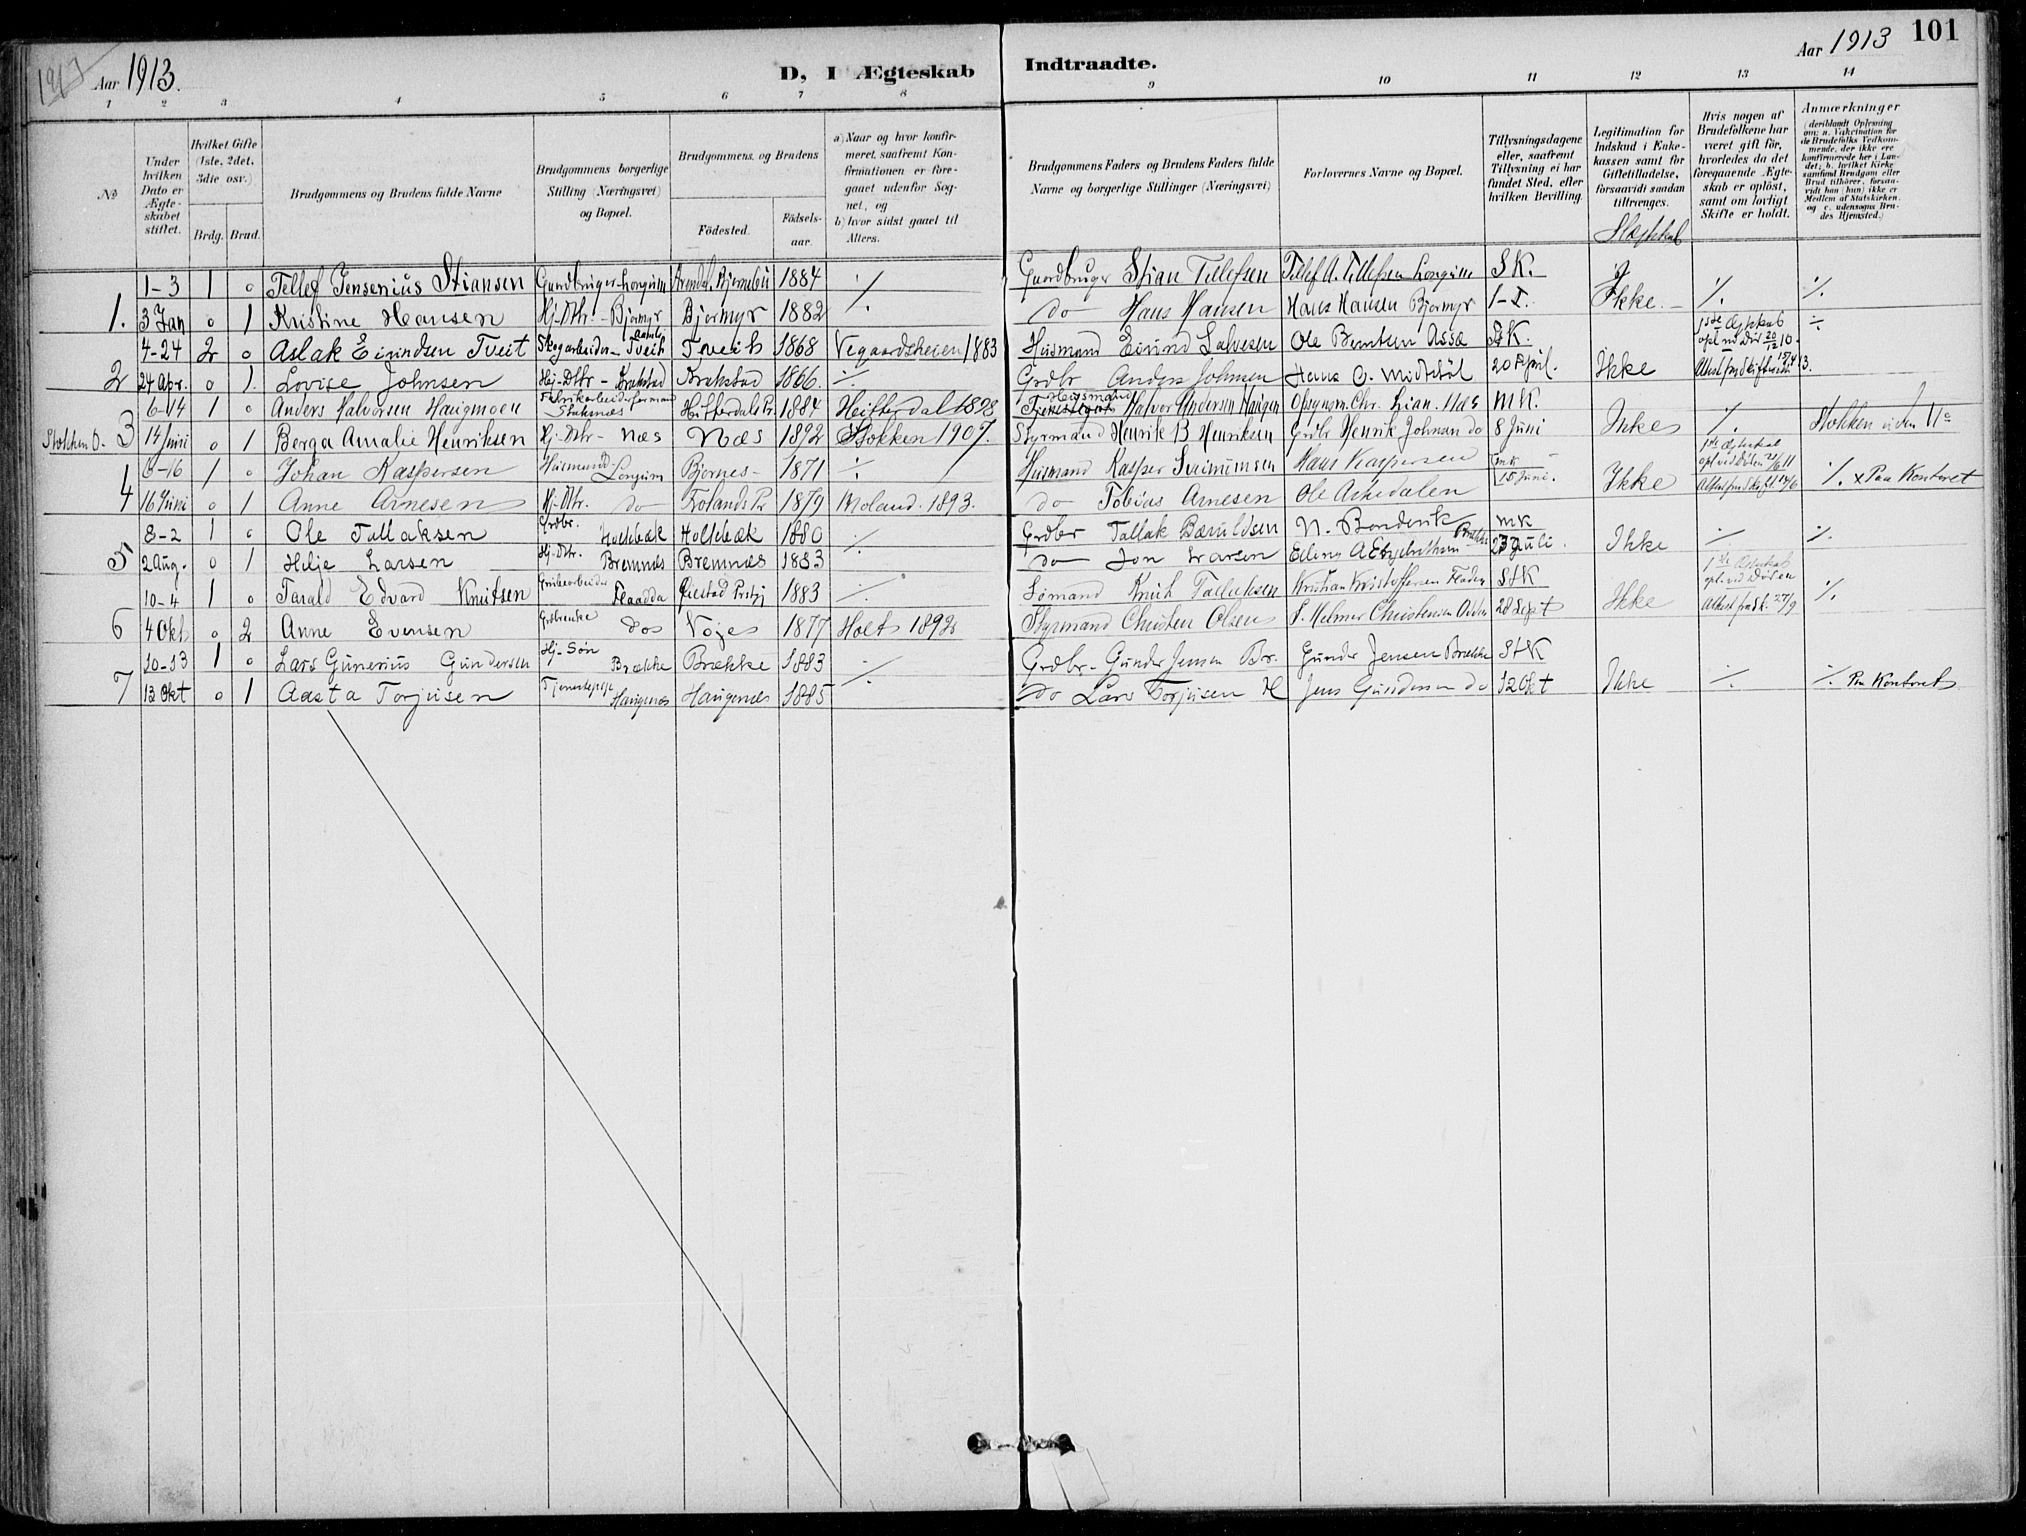 1913
Aar 1913.
D, I Ægteskab
Indtraadte.
Aar 1913
101
1 2 3 4 5 6 7 8 9 10 11 12 13 14
No
Under hvilken Dato er Ægteskabet stiftet.
Hvilket Gifte (1ste, 2det, 3die osv.)
Brdg. Brud.
Brudgommens og Brudens fulde Navne
Brudgommens borgerlige Stilling (Næringsvei) og Bopæl.
Brudgommens og Brudens
Födested.
Födselsaar.
a) Naar og hvor konfirmeret, saafremt Konfirmationen er foregaaet udenfor Sognet, og
b) hvor sidst gaaet til Alters.
Brudgommens Faders og Brudens Faders fulde Navne og borgerlige Stillinger (Næringsvei)
Forlovernes Navne og Bopæl.
Tillysningsdagene eller, saafremt Tillysning ei har fundet Sted, efter hvilken Bevilling.
Legitimation for Indskud i Enkekassen samt for Giftetilladelse, forsaavidt saadan tiltrænges.
Hvis nogen af Brudefolkene har været gift för, hvorledes da det foregaaende Ægteskab er oplöst, samt om lovligt Skifte er holdt.
Anmærkninger (deriblandt Oplysning om: a. Vakcination for de Brudefolks Vedkommende, der ikke ere konfirmerede her i Landet; b. hvilket Kirkesamfund Brudgom eller Brud tilhører, forsaavidt han (hun) ikke er Medlem af Statskirken, og c. udensogns Brudes Hjemsted.)
1-3 1 o Tellef Jensenius Stiansen Gaardbruger Longum Arendal. 1884 ⁒ Gaardbruger Stian Tellefsen Tellef A. Tellefsen Longum S.K.
1. 3 Jan o 1 Kristine Hansen Hj-Dtr - Bjormyr Bjormyr 1882 do Hans Hansen Hans Hansen Bjormyr 1-I. Ikke. ⁒ ⁒
4-24 2 o Aslak Eivindsen Tveit Skogarbeider - Tveit Aamli Tveit 1868 Vegaardsheien 1883 Husmand Eivind Salvesen Ole Berntsen Assæ StK. 1ste Ægteskab opl ved Död 20/12 10.
2 24 Apr. o 1. Lovise Johnsen Hj-Dtr - Brekstad Brekstad 1866. ⁒ Grdbr Anders Johnsen Hans O. Midtböl 20 April. Ikke
6-14 1 o Anders Halvorsen Haugmoen Fabrikarbeider formand Hitterdal Pr. 1884 Hitterdal 1898 Husmand Halvor Andersen Haugen Opsynsm. Chr. Lian. Næs MK.
3 14 Juni o 1 Berga Amalie Henriksen Hj-Dtr - Næs Næs 1892 Stokken 1907. Styrmand Henrik B Henriksen Grdbr Henrik Johnsen do 8 Juni Ikke ⁒ Stokken
6-16 1 o Johan Kaspersen Husmand - Longum Bjornes - 1871 ⁒ Husmand Kasper Hans Kaspersen MK 1ste Ægteskab opl ved Döden
4 16 Juni o 1 Anne Arnesen Hj-Dtr. do Frolands Pr 1879 Moland. 1893. do Tobias Arnesen Ole Askedalen 15 Juni. Ikke ⁒ x Paa Kontoret
8-2 1 o Ole Tallaksen Grdbr. Holtebæk Holtebæk 1880 ⁒ Grdbr Tallak MK
5 2 Aug. o 1 Helje Larsen Hj-Dtr. Bremnes Bremnæs 1883 do Jon Larsen 27 Juli. Ikke ⁒ ⁒
10-4 1 o Tarald Edvard Knutsen Grubearbeider Flaadda Öiestad Prstgj 1883 ⁒ Sömand Knut Tallaksen Kristian Kristoffersen StK 1ste Ægteskab opl ved Döden
6 4 Okt o 2 Anne Evensen do Voje 1877 Holt 1892 Styrmand Christen Olsen S. Helmer Christensen 28 Sept Ikke Attest fra Sk. 27/9 ⁒
10-13 1 o Lars Gunerius Gundersen Hj-Sön Brække Brække 1883 ⁒ Grdbr - Gunder Jensen Br. Gunder Jensen Brække StK
7 13 Okt o 1 Aasta Torjusen Haugenæs Haugenæs 1885 do Lars Torjusen H Jens Gundersen do 12 Okt Ikke ⁒ ⁒ Paa Kontoret